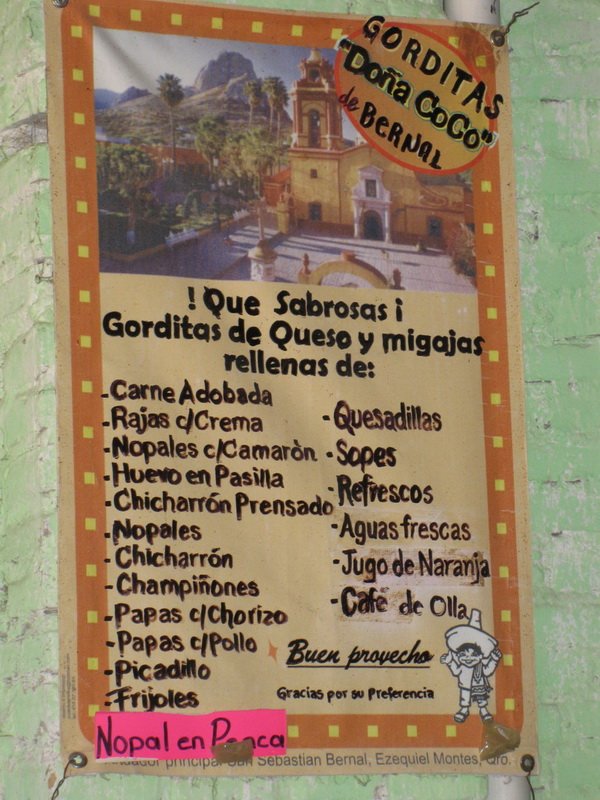 GORDITAS
"Doña CoCo"
de BERNAL
! Que Sabrosas ¡
Gorditas de Queso y migajas
rellenas de:
-Carne Adobada
-Rajas c/Crema
-Nopales c/Camaròn
-Huevo en Pasilla
-Chicharrón Prensado
-Nopales
-Chicharrón
-Champiñones
-Papas c/Chorizo
-Papas c/Pollo
-Picadillo
-Frijoles
-Quesadillas
-Sopes
-Refrescos
-Aguas frescas
-Jugo de Naranja
-Café de Olla
Buen provecho
Gracias por su Preferencia
Nopal en Penca
principal San Sebastian Bernal, Ezequiel Montes, Qro.